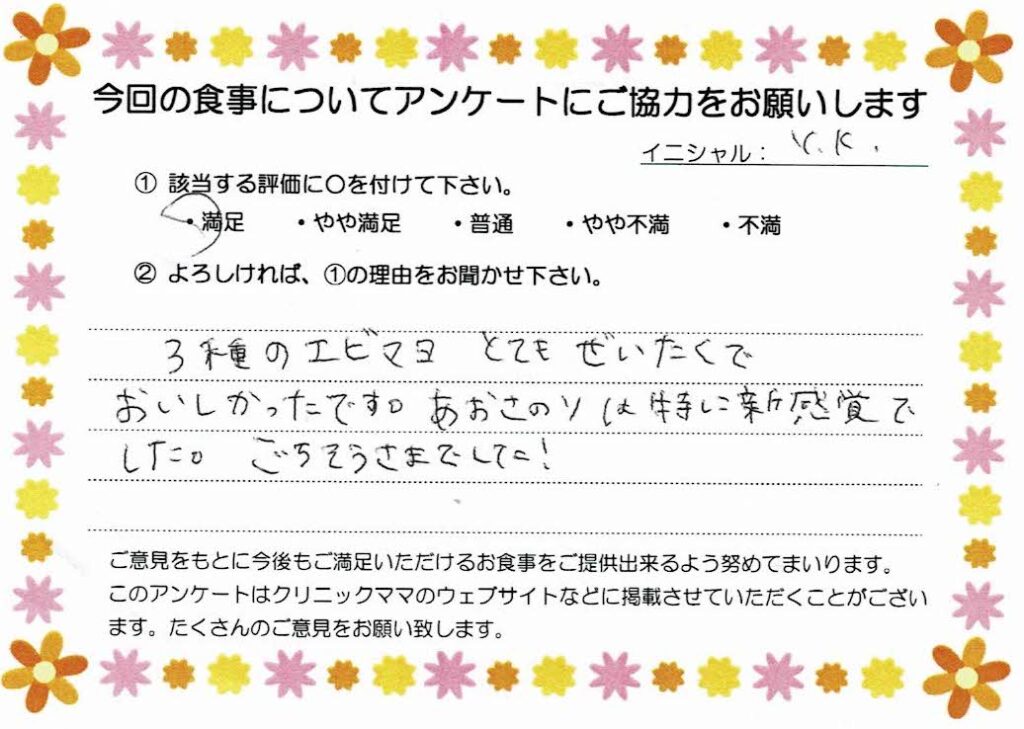 今回の食事についてアンケートにご協力をお願いします
イニシャル： Y.K.
① 該当する評価に〇を付けて下さい。
・満足 ・やや満足 ・普通 ・やや不満 ・不満
② よろしければ、①の理由をお聞かせ下さい。
3種のエビマヨ とても ぜいたくで
おいしかったです。 あおさのりは特に新感覚で
した。 ごちそうさまでした！
ご意見をもとに今後もご満足いただけるお食事をご提供出来るよう努めてまいります。
このアンケートはクリニックママのウェブサイトなどに掲載させていただくことがござい
ます。たくさんのご意見をお願い致します。